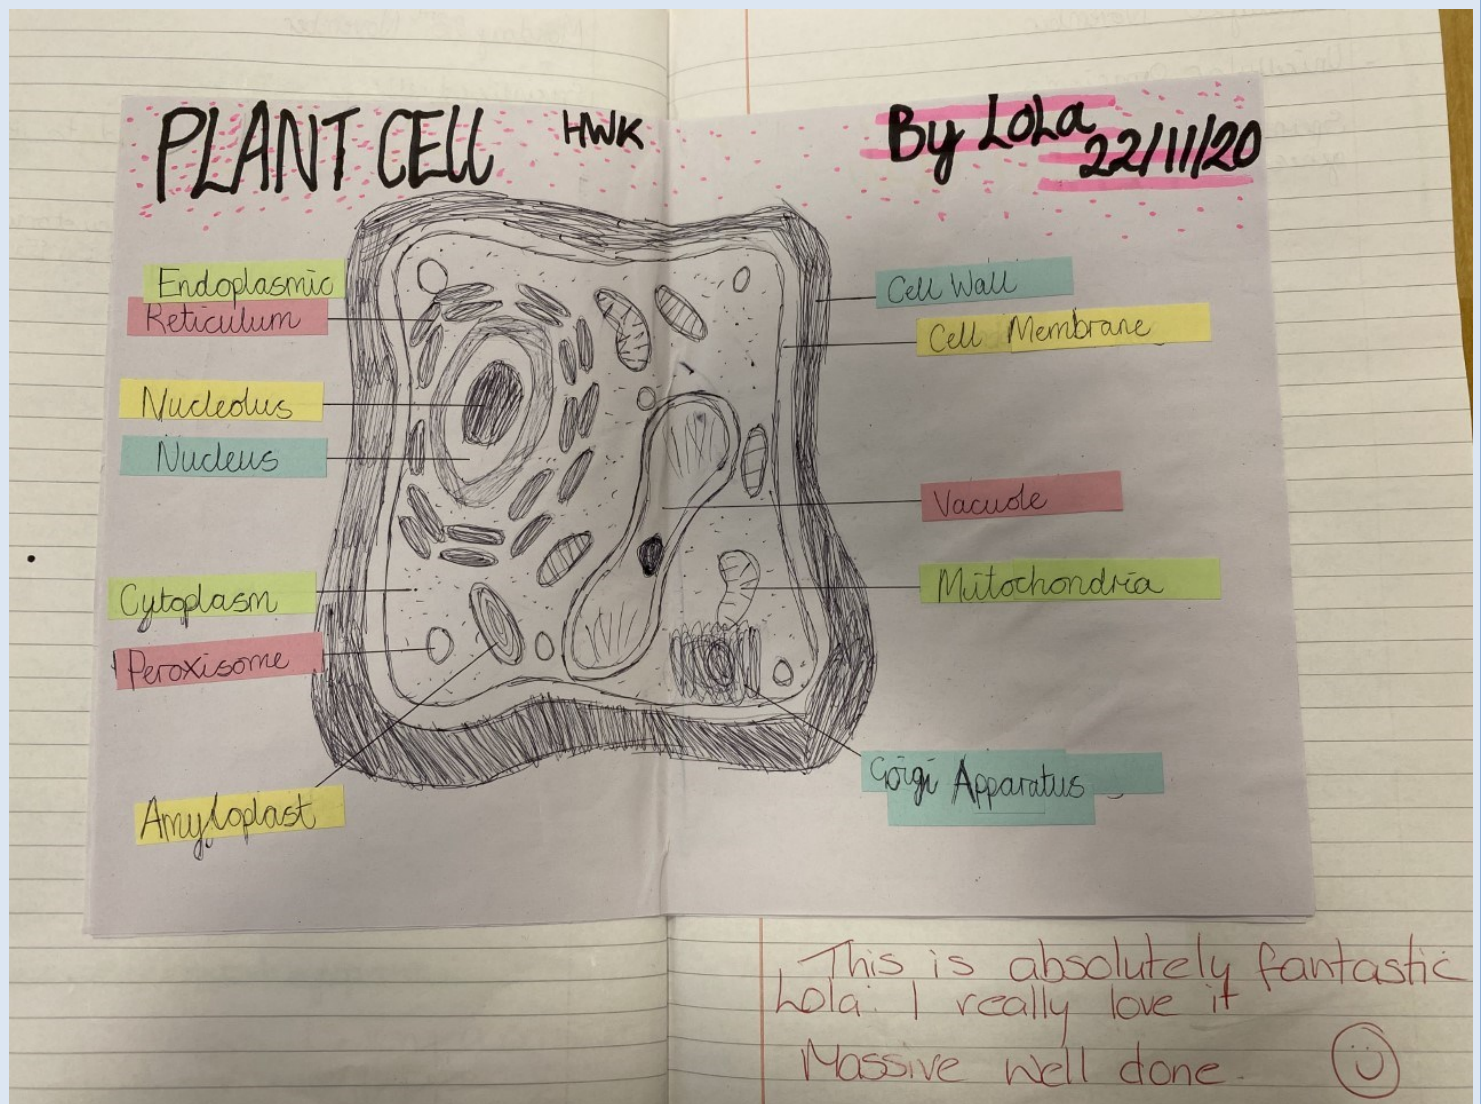 PLANT CELL HWK
By LoLa
22/11/20
Endoplasmic
Reticulum
Nucleolus
Nucleus
Cytoplasm
Peroxisome
Amyloplast
Cell Wall
Cell Membrane
Vacuole
Mitochondria
Golgi Apparatus
This is absolutely fantastic
Lola. I really love it
Massive well done.